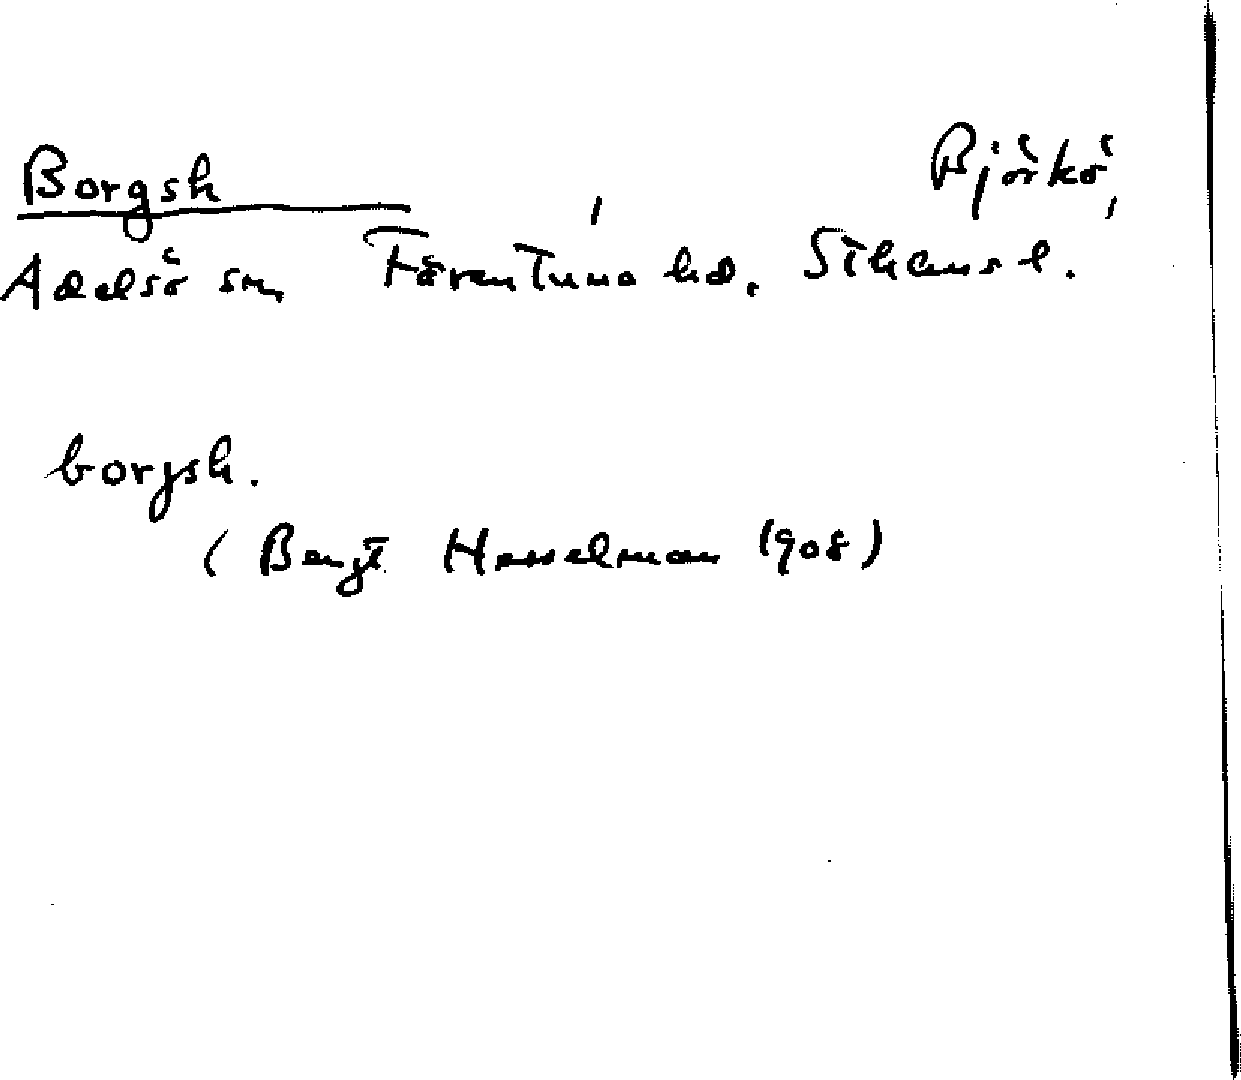 Borgsh , Björkö,
Adelsö sn, Färentuna hd. Sthams l.
borgsh.
( Bengt Hesselman 1908)